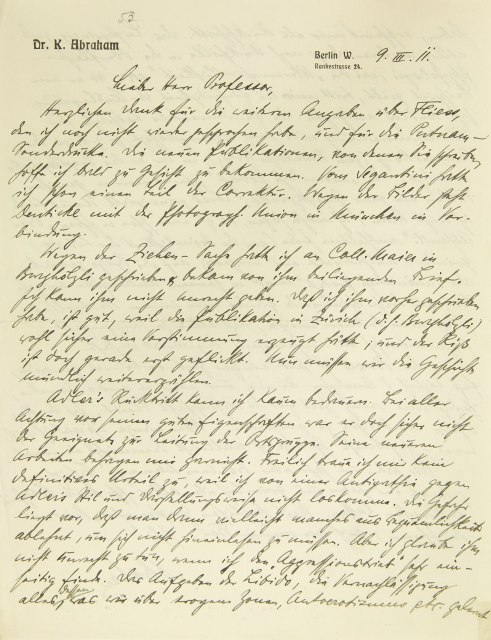 53
Dr. K. Abraham
Berlin W. 9. III. 11.
Rankestrasse 24.
Lieber Herr Professor,
Herzlichen Dank für die weiteren Angaben über Fliess,
den ich noch nicht wieder gesprochen habe, und für die Putnam-
Sonderdrucke. Die neuen Publikationen, von denen Sie schreiben,
hoffe ich bald zu Gesicht zu bekommen. Vom Segantini hatte
ich schon einen Teil der Correktur. Wegen der Bilder steht
Deuticke mit der Photograph. Union in München in Ver-
bindung.
Wegen der Ziehen-Sache hatte ich an Coll. Maier in
Burghölzli geschrieben u. bekam von ihm beiliegenden Brief.
Ich kann ihm nicht unrecht geben. Daß ich ihm vorher geschrieben
habe, ist gut, weil die Publikation in Zürich (d. h. Burghölzli)
wohl sicher eine Verstimmung erzeugt hätte; und der Riß
ist doch gerade erst geflickt. Nun müssen wir die Geschichte
mündlich weitererzählen.
Adler's Rücktritt kann ich kaum bedauern. Bei aller
Achtung vor seinen guten Eigenschaften war er doch sicher nicht
der Geeignete zur Leitung der Ortsgruppe. Seine neueren
Arbeiten behagen mir garnicht. Freilich traue ich mir kein
definitives Urteil zu, weil ich von einer Antipathie gegen
Adlers Stil und Darstellungsweise nicht loskomme. Die Gefahr
liegt vor, daß man dann vielleicht manches aus Bequemlichkeit
ablehnt, um sich nicht hineinlesen zu müssen. Aber ich glaube ihm
nicht Unrecht zu tun, wenn ich den „Aggressionstrieb" sehr ein-
seitig finde. Das Aufgeben der Libido, die Vernachlässigung
alles dessen, was wir über erogene Zonen, Autoerotismus etc. gelernt